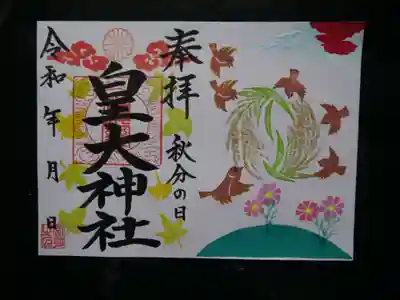 奉拝
秋分の日
皇大神社
令和 年 月 日